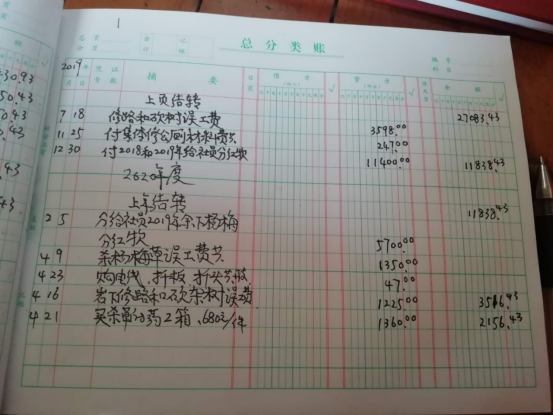 总分类账
2019年 凭证 摘要 借方 贷方 余额
月 日 号数
上页结转 27083.43
7 18 修路和砍树误工费 3598.00
11 25 付集体修公厕材料费 247.00
12 30 付2018和2019年给社员分红款 11400.00 11838.43
2020年度
上年结转 11838.43
2 5 分给社员2019年余下杨梅
分红款 5700.00
4 9 杀杨梅草误工费 1350.00
4 23 购电线、插板、插头 47.00
4 16 岩下修路和砍杂树误工费 1225.00 3516.43
4 21 买杀草药2箱、680元/件 1360.00 2156.43